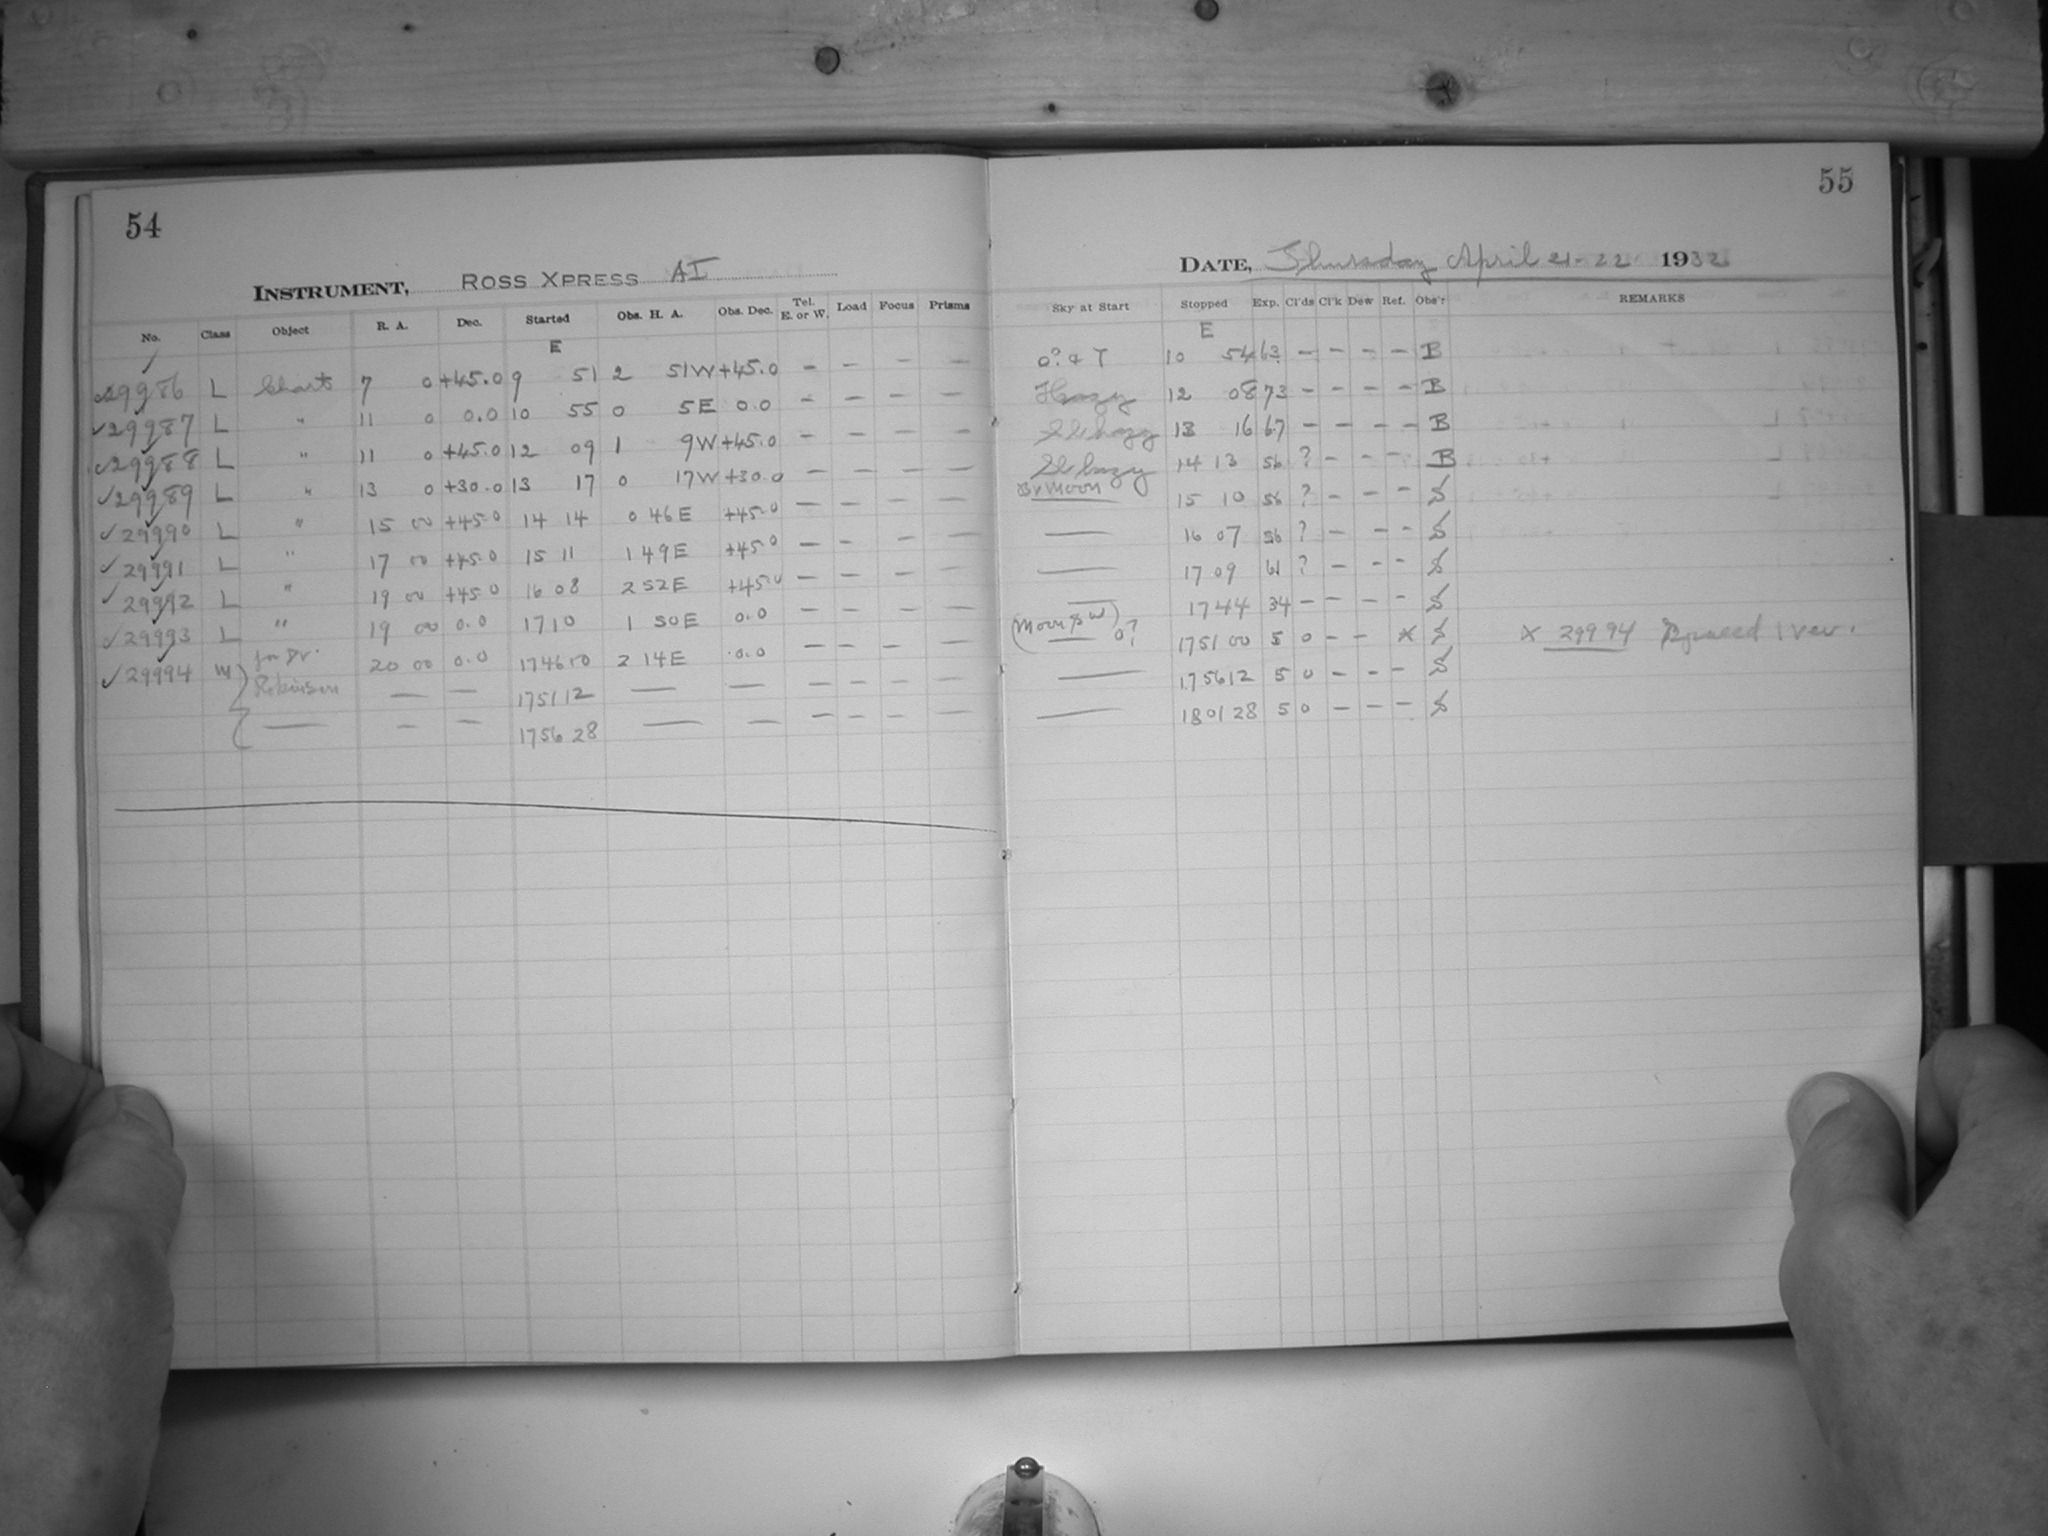 54
INSTRUMENT, ROSS XPRESS AI
No. Class Object R. A. Dec. Started Obs. H. A. Obs. Dec. Tel. E. or W. Load Focus Prisms
E
✓29986 L Charts 7 0 +45.0 9 51 2 51W +45.0 – – – –
✓29987 L " 11 0 0.0 10 55 0 5E 0.0 – – – –
✓29988 L " 11 0 +45.0 12 09 1 9W +45.0 – – – –
✓29989 L " 13 0 +30.0 13 17 0 17W +30.0 – – – –
✓29990 L " 15 00 +45.0 14 14 0 46E +45.0 – – – –
✓29991 L " 17 00 +45.0 15 11 1 49E +45.0 – – – –
✓29992 L " 19 00 +45.0 16 08 2 52E +45.0 – – – –
✓29993 L " 19 00 0.0 17 10 1 50E 0.0 – – – –
✓29994 W for Dr. Robinson 20 00 0.0 17 46 00 2 14E 0.0 – – – –
— — 17 51 12 — — – – – –
— — — 17 56 28 — — – – – –
55
DATE, Thursday April 21-22 1932
Sky at Start Stopped Exp. Cl'ds Cl'k Dew Ref. Obs'r REMARKS
E
0? & T 10 54 63 – – – – B
Hazy 12 08 73 – – – – B
Sl hazy 13 16 67 – – – – B
Sl hazy 14 13 56 ? – – – B
Br Moon 15 10 56 ? – – – S
— 16 07 56 ? – – – S
— 17 09 61 ? – – – S
— 17 44 34 – – – – S
(Moon S W) 0? 17 51 00 5 0 – – X S X 29994 1 rev.
— 17 56 12 5 0 – – – S
— 18 01 28 5 0 – – – S